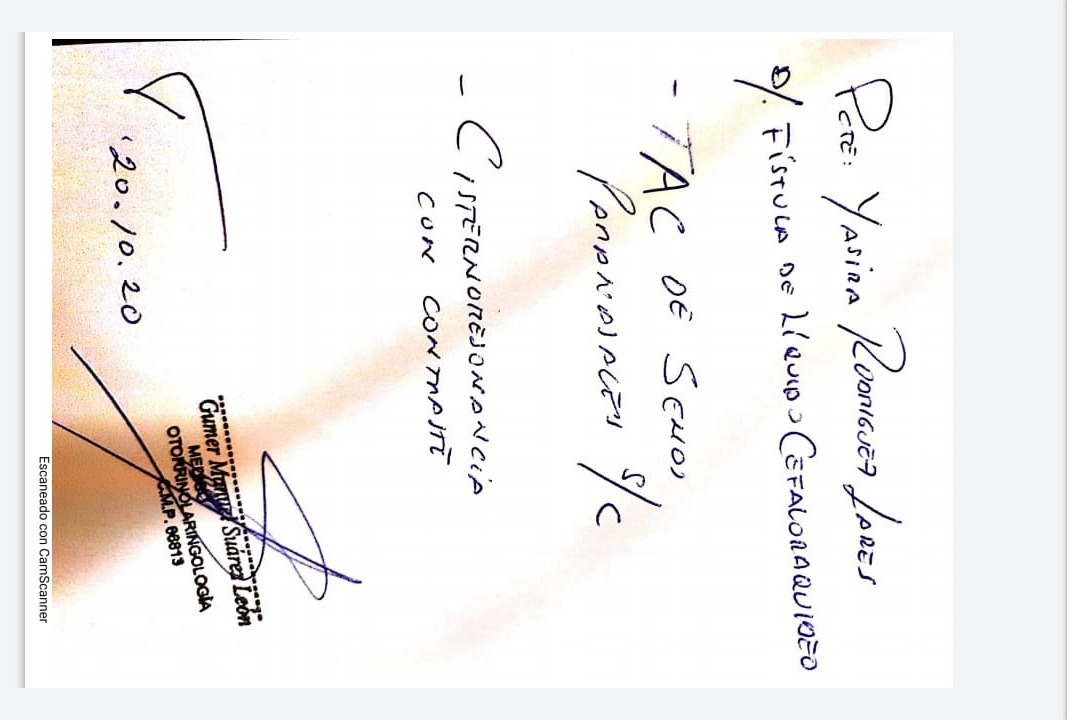 PCTE: YASIRA RODRIGUEZ LARES
D/. FÍSTULA DE LÍQUIDO CEFALORAQUIDEO
- TAC DE SENOS
PARANASALES S/C
- CISTERNORESONANCIA
CON CONTRASTE
20.10.20
Gumer Manuel Suárez León
MEDICO
OTORRINOLARINGOLOGÍA
C.M.P. 66813
Escaneado con CamScanner